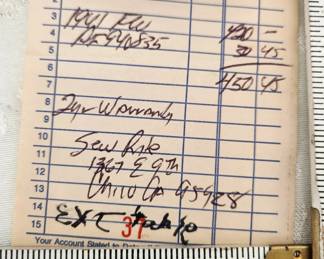 2
3
4 AF940835 30 45
5
6
7 450 45
8
9 2yr Warranty
10
11 Sew Rite
12 1367 E 9th
13 Chico Ca 95928
14
15 EXT 37
Your Account Stated to